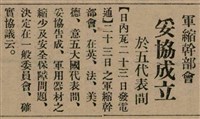 軍縮幹部會
妥協成立
於五代表間
【日內瓦二十三日發電
通】二十三日之軍縮幹
部會、在英、法、美、
德、意五大國代表間、
妥協告成、軍用器材之
縮少及安全保障問題、
決定在一般委員會、確
實協議云。